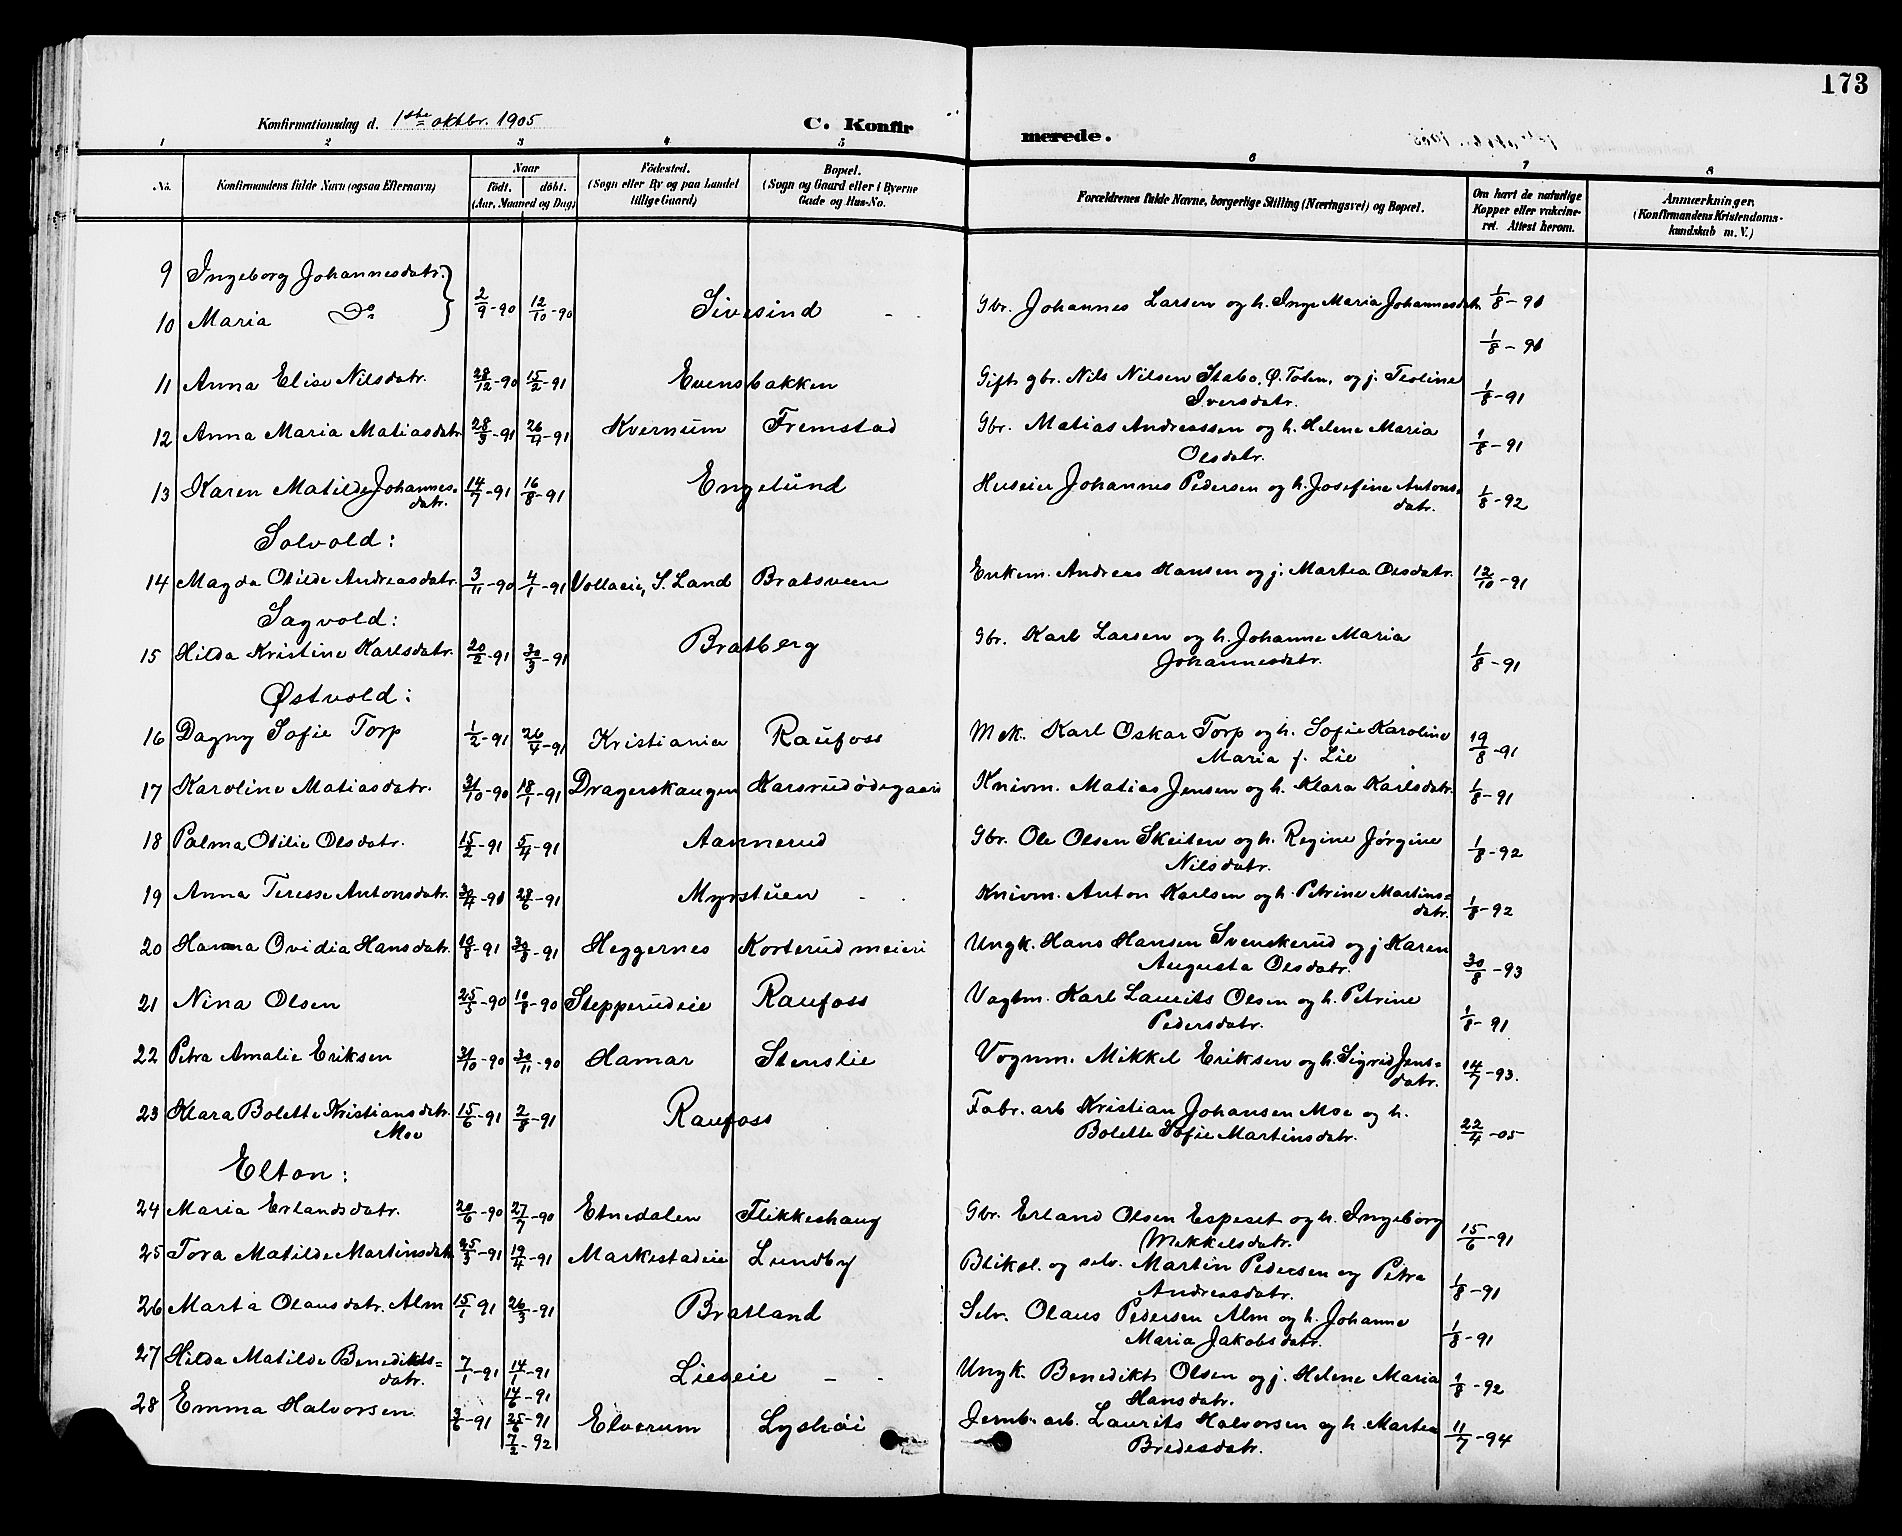 173
Konfirmationsdag d. 1ste oktbr. 1905 C. Konfirmerede.
1 2 3 4 5 6 7 8
No. Konfirmandens fulde Navn (ogsaa Efternavn) Naar födt. döbt. (Aar, Maaned og Dag) Födested. (Sogn eller By og paa Landet tillige Gaard) Bopæl. (Sogn og Gaard eller i Byerne Gade og Hus-No. Forældrenes fulde Navne, borgerlige Stilling (Næringsvei) og Bopæl. Om havt de naturlige Kopper eller vakcineret. Attest herom. Anmærkninger. (Konfirmandens Kristendomskundskab m. V.)
9 Ingeborg Johannesdatr.
10 Maria Do 2/9-90 12/10-90 Sivesind - Gbr. Johannes Larsen og h. Inge Maria Johannesdatr. 1/8-91
1/8-91
11 Anna Elise Nilsdatr. 28/12-90 15/2-91 Evensbakken Gift gbr. Nils Nilsen Stabo, Ø. Toten, og j. Teoline
Iversdatr. 1/8-91
12 Anna Maria Matiasdatr 28/3-91 26/4-91 Kvernum Fremstad Gbr. Matias Andreassen og h. Helene Maria
Olsdatr. 1/8-91
13 Karen Matilde Johannes= 14/7-91 16/8-91 Engelund Huseier Johannes Pedersen og h. Josefine Antons=
datr. datr. 1/8-92
Solvold:
14 Magda Otilde Andreasdatr. 3/11-90 4/1-91 Vollaeie, S. Land Bratsveen Enkem. Andreas Hansen og j. Martea Olsdatr. 12/10-91
Sagvold:
15 Hilda Kristine Karlsdatr. 20/2-91 30/3-91 Bratberg Gbr. Karl Larsen og h. Johanne Maria
Johannesdatr. 1/8-91
Østvold:
16 Dagny Sofie Torp 1/2-91 26/4-91 Kristiania Raufoss Mek. Karl Oskar Torp og h. Sofie Karoline
Maria f. Lie 19/8-91
17 Karoline Matiasdatr. 31/10-90 18/1-91 Dragerskaugen Karsrudødegaard Knivm. Matias Jensen og h. Klara Karlsdatr. 1/8-91
18 Palma Otilie Olsdatr. 15/2-91 5/4-91 Aannerud Gbr. Ole Olsen Skeiten og h. Regine Jørgine
Nilsdatr. 1/8-92
19 Anna Teresse Antonsdatr. 30/4-91 28/6-91 Myrstuen - . Knivm. Anton Karlsen og h. Petrine Martins=
datr. 1/8-92
20 Hanna Ovidia Hansdatr. 19/8-91 30/8-91 Heggernes Korterud meieri Ungk. Hans Hansen Svenskerud og j Karen
Augusta Olsdatr. 30/8-93
21 Nina Olsen 25/5-90 10/8-90 Stepperudeie Raufoss Vagtm. Karl Laurits Olsen og h. Petrine
Pedersdatr. 1/8-91
22 Petra Amalie Eriksen 31/10-90 30/11-90 Hamar Stenslie Vognm. Mikkel Eriksen og h. Sigrid Jens=
datr. 14/7-93.
23 Klara Bolette Kristiansdatr. 15/6-91 2/8-91 Raufoss Fabr. arb Kristian Johansen Moe og h.
Moe Bolette Sofie Martinsdatr. 22/4-05
Elton:
24 Maria Erlandsdatr. 20/6-90 27/7-90 Etnedalen Flikkeshaug Gbr. Erland Olsen Espeset og h. Ingeborg
Mekkelsdatr. 15/6-91
25 Tora Matilde Martinsdatr 25/3-91 19/4-91 Markestadeie Lundby Bliksl. og selv. Martin Pedersen og Petra
Andreasdatr. 1/8-91
26 Marta Olausdatr. Alm 15/1 91 26/3-91 Bratland Selv. Olaus Pedersen Alm og h. Johanne
Maria Jakobsdatr. 1/8-91
27 Hilda Matilde Benedikts= 7/1-91 14/1-91 Lieseie - - Ungk. Benedikt Olsen og j. Helene Maria
datr. 14/6-91 Hansdatr. 1/8-92
28 Emma Halvorsen 3/6-91 25/6-91 Elverum Lyshöi Jernb. arb. Laurits Halvorsen og h. Martea
7/2-92 Bredesdatr. 11/7-94